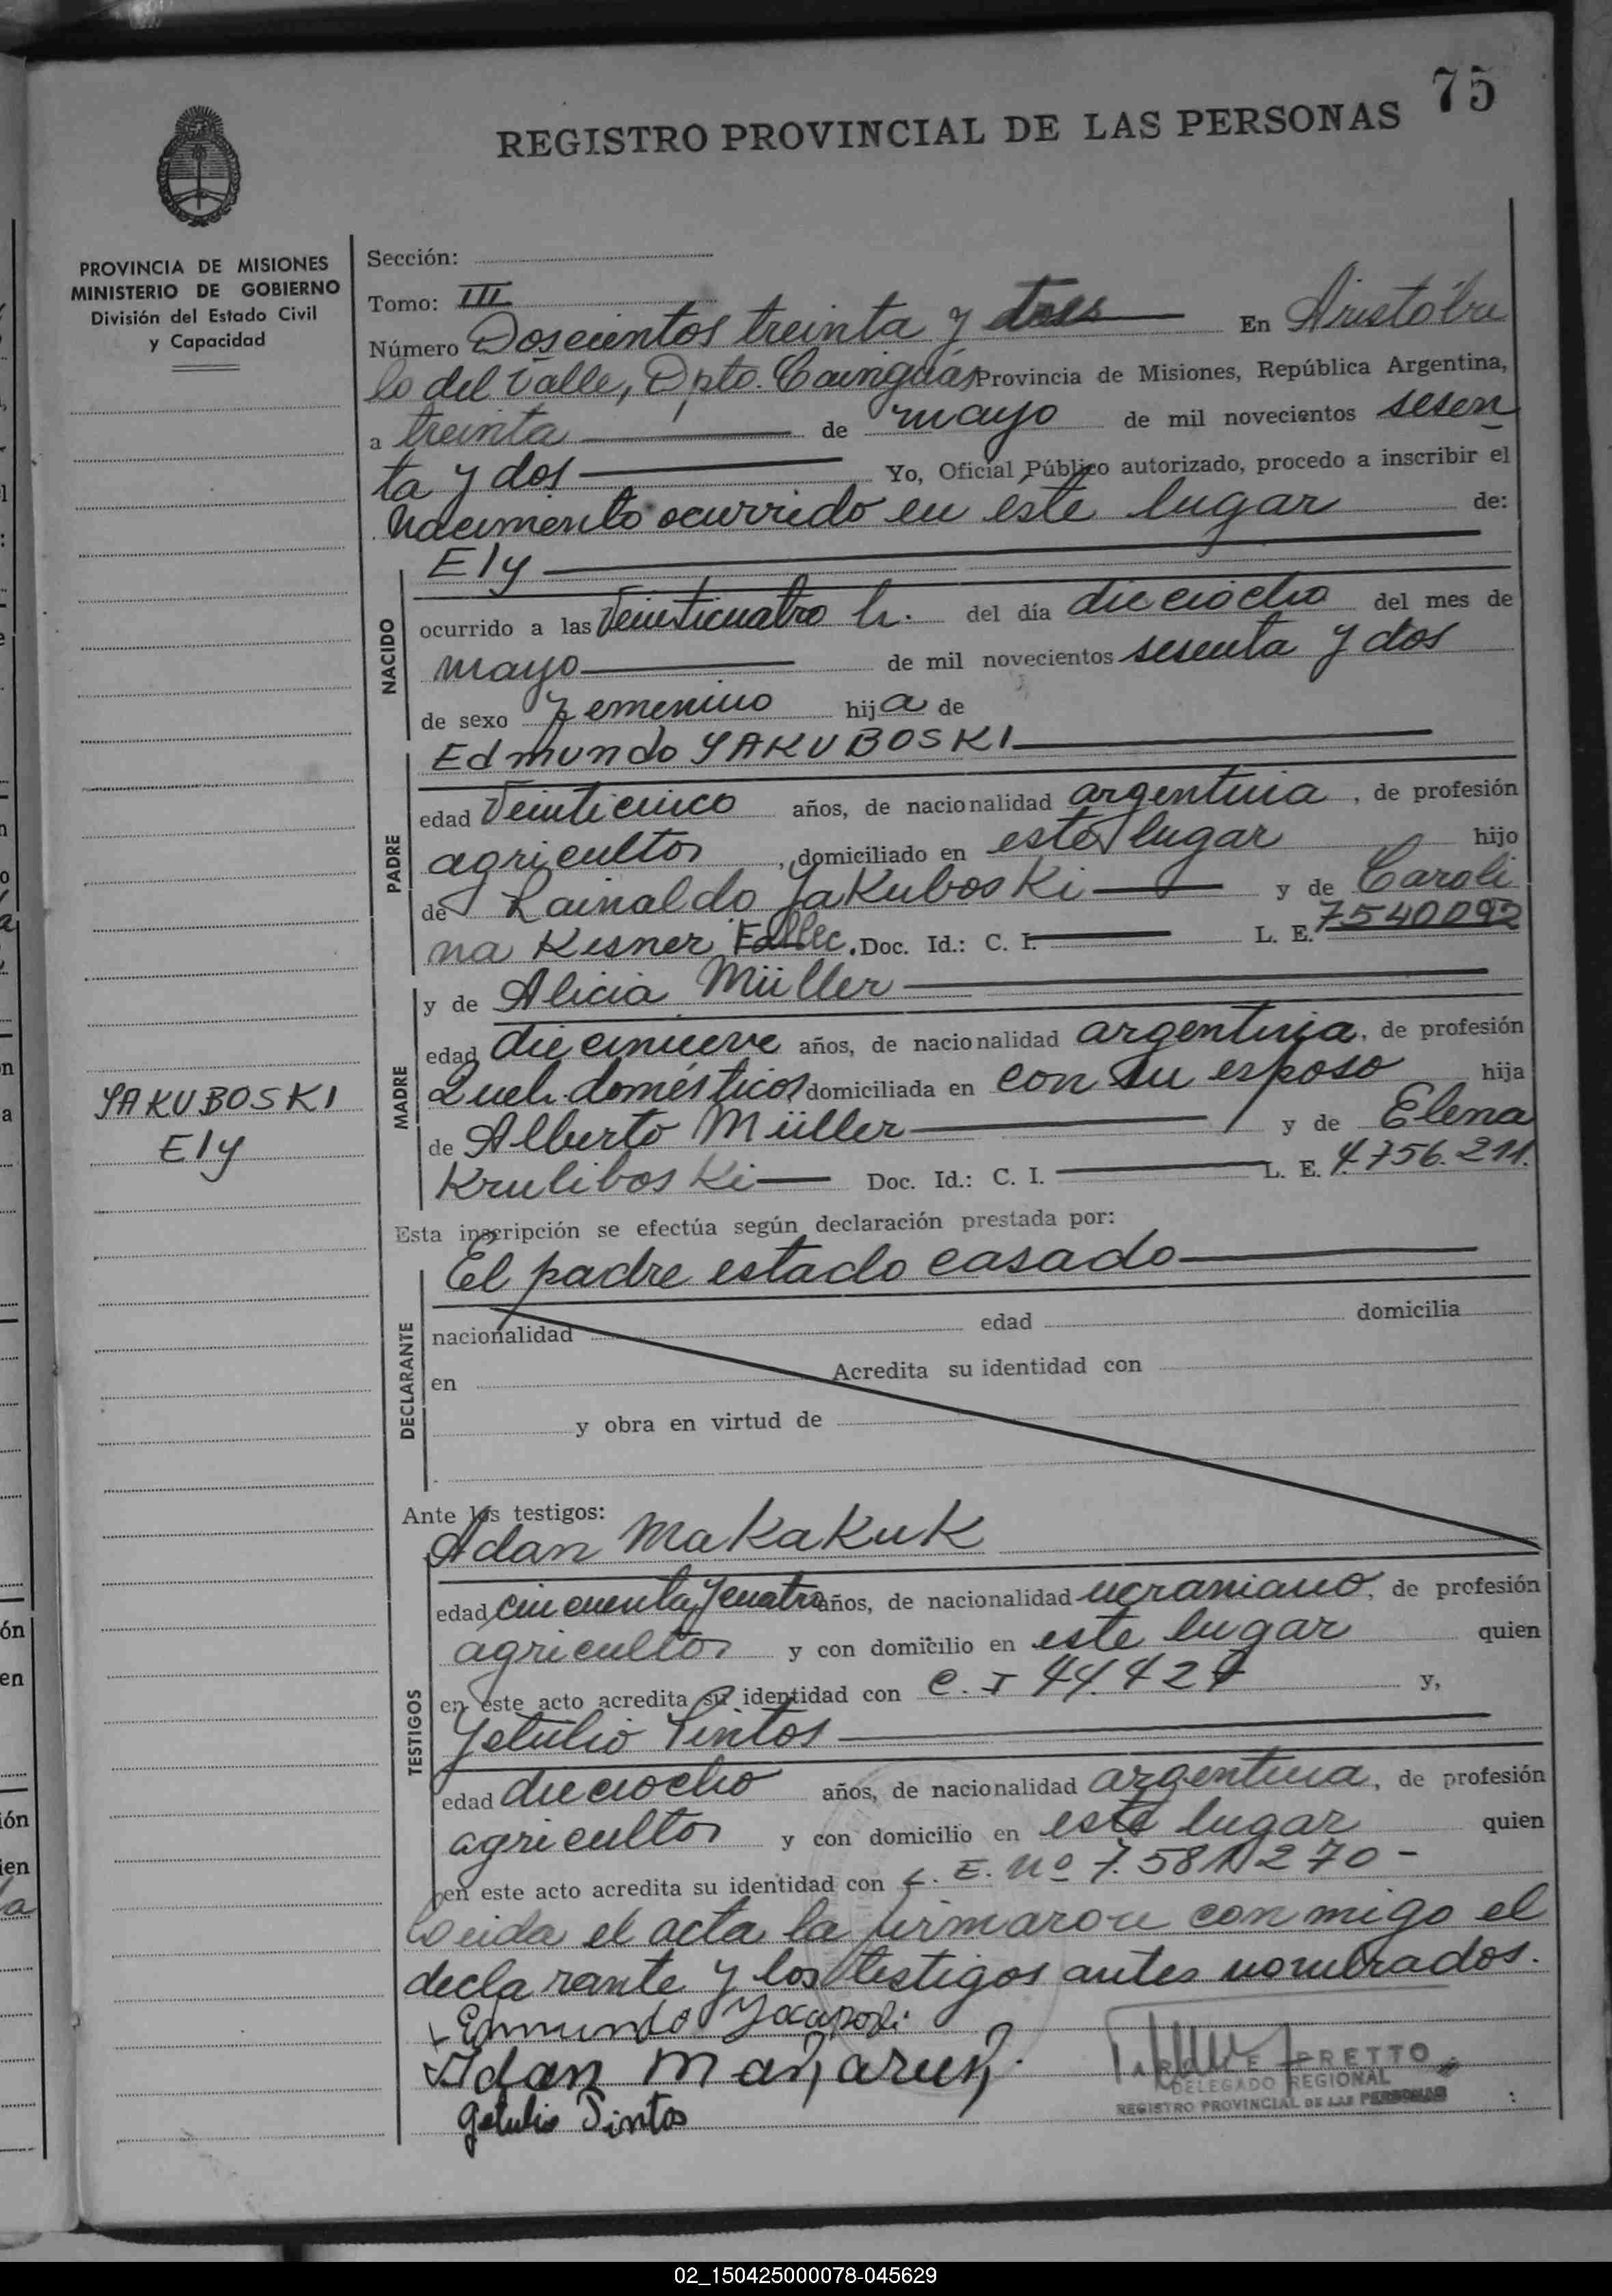 75
REGISTRO PROVINCIAL DE LAS PERSONAS
PROVINCIA DE MISIONES
MINISTERIO DE GOBIERNO
División del Estado Civil
y Capacidad
Sección:
Tomo: III
Número Doscientos treinta y tres En Aristóbu
lo del Valle, Dpto. Cainguás Provincia de Misiones, República Argentina,
a treinta de mayo de mil novecientos sesen
ta y dos Yo, Oficial Público autorizado, procedo a inscribir el
nacimiento ocurrido en este lugar de:
NACIDO
Ely
ocurrido a las Veinticuatro h. del día dieciocho del mes de
mayo de mil novecientos sesenta y dos
de sexo femenino hija de
PADRE
Edmundo YAKUBOSKI
edad Veinticinco años, de nacionalidad argentina, de profesión
agricultor, domiciliado en este lugar hijo
de Rainaldo Jakuboski y de Caroli
na Kesner Fallec. Doc. Id.: C. I. L. E. 7540092
MADRE
y de Alicia Müller
edad diecinueve años, de nacionalidad argentina, de profesión
Queh. domésticos domiciliada en con su esposo hija
de Alberto Müller y de Elena
Kruliboski Doc. Id.: C. I. L. E. 4.756.211.
YAKUBOSKI
Ely
Esta inscripción se efectúa según declaración prestada por:
DECLARANTE
El padre estado casado
nacionalidad edad domicilia
en Acredita su identidad con
y obra en virtud de
Ante los testigos:
TESTIGOS
Adan Makakuk
edad cincuenta y cuatro años, de nacionalidad ucraniano, de profesión
agricultor y con domicilio en este lugar quien
en este acto acredita su identidad con C. I 44.427 y,
Getulio Pintos
edad dieciocho años, de nacionalidad argentina, de profesión
agricultor y con domicilio en este lugar quien
en este acto acredita su identidad con L. E. Nº 7.581270-
Leida el acta la firmaron conmigo el
declarante y los testigos antes nombrados.
Edmundo
Adan
Getulio Pintos
PRETTO
DELEGADO REGIONAL
REGISTRO PROVINCIAL DE LAS PERSONAS
02_150425000078-045629